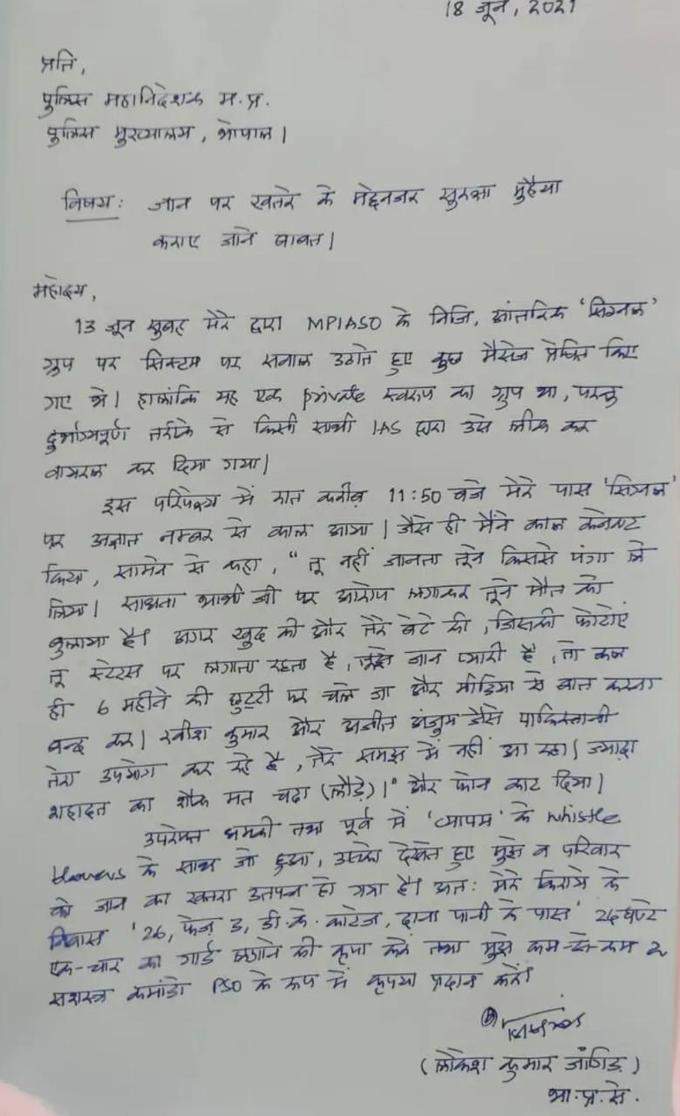 18 जून, 2021
प्रति,
पुलिस महानिदेशक म.प्र.
पुलिस मुख्यालय, भोपाल।
विषय: जान पर खतरे के मद्देनजर सुरक्षा मुहैया
कराए जाने बाबत।
महोदय,
13 जून सुबह मेरे द्वारा MPIASO के निजि, आंतरिक 'सिग्नल'
ग्रुप पर सिस्टम पर सवाल उठाते हुए कुछ मैसेज प्रेषित किए
गए थे। हालांकि यह एक private स्वरूप का ग्रुप था, परन्तु
दुर्भाग्यपूर्ण तरीके से किसी साथी IAS द्वारा उसे लीक कर
वायरल कर दिया गया।
इस परिपेक्ष्य में रात करीब 11:50 बजे मेरे पास 'सिग्नल'
पर अज्ञात नम्बर से काल आया। जैसे ही मैंने काल कनेक्ट
किया, सामने से कहा, "तू नहीं जानता तूने किससे पंगा ले
लिया। साधना भाभी जी पर आरोप लगाकर तूने मौत को
बुलाया है। अगर खुद की और तेरे बेटे की, जिसकी फोटोएं
तू स्टेटस पर लगाता रहता है, तुझे जान प्यारी है, तो कल
ही 6 महीने की छुट्टी पर चले जा और मीडिया से बात करना
बन्द कर। रवीश कुमार और अजीत अंजुम जैसे पाकिस्तानी
तेरा उपयोग कर रहे है, तेरे समझ में नहीं आ रहा। ज्यादा
शहादत का शौक मत चढ़ा (लौड़े)।" और फोन काट दिया।
उपरोक्त धमकी तथा पूर्व में 'व्यापम' के whistle
blowers के साथ जो हुआ, उसको देखते हुए मुझे व परिवार
को जान का खतरा उत्पन्न हो गया है। अत: मेरे किराये के
निवास '26, फेज 3, डी.के. काटेज, दाना पानी के पास' 24 घण्टे
एक-चार का गार्ड लगाने की कृपा करे तथा मुझे कम-से-कम 2
सशस्त्र कमांडो PSO के रूप में कृपया प्रदान करें।
(लोकेश कुमार जांगिड़)
भा.प्र.से.